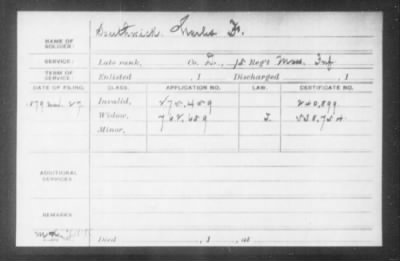 NAME OF SOLDIER: Southwick, Charles F.
SERVICE: Late rank, Co. , 15 Reg't Mass. Inf
TERM OF SERVICE: Enlisted , 1 Discharged , 1
DATE OF FILING. CLASS. APPLICATION NO. LAW. CERTIFICATE NO.
1879 27 Invalid, 275.459 240.899
Widow, 768.659 538.754
Minor,
ADDITIONAL SERVICES:
REMARKS:
Died , 1 , at